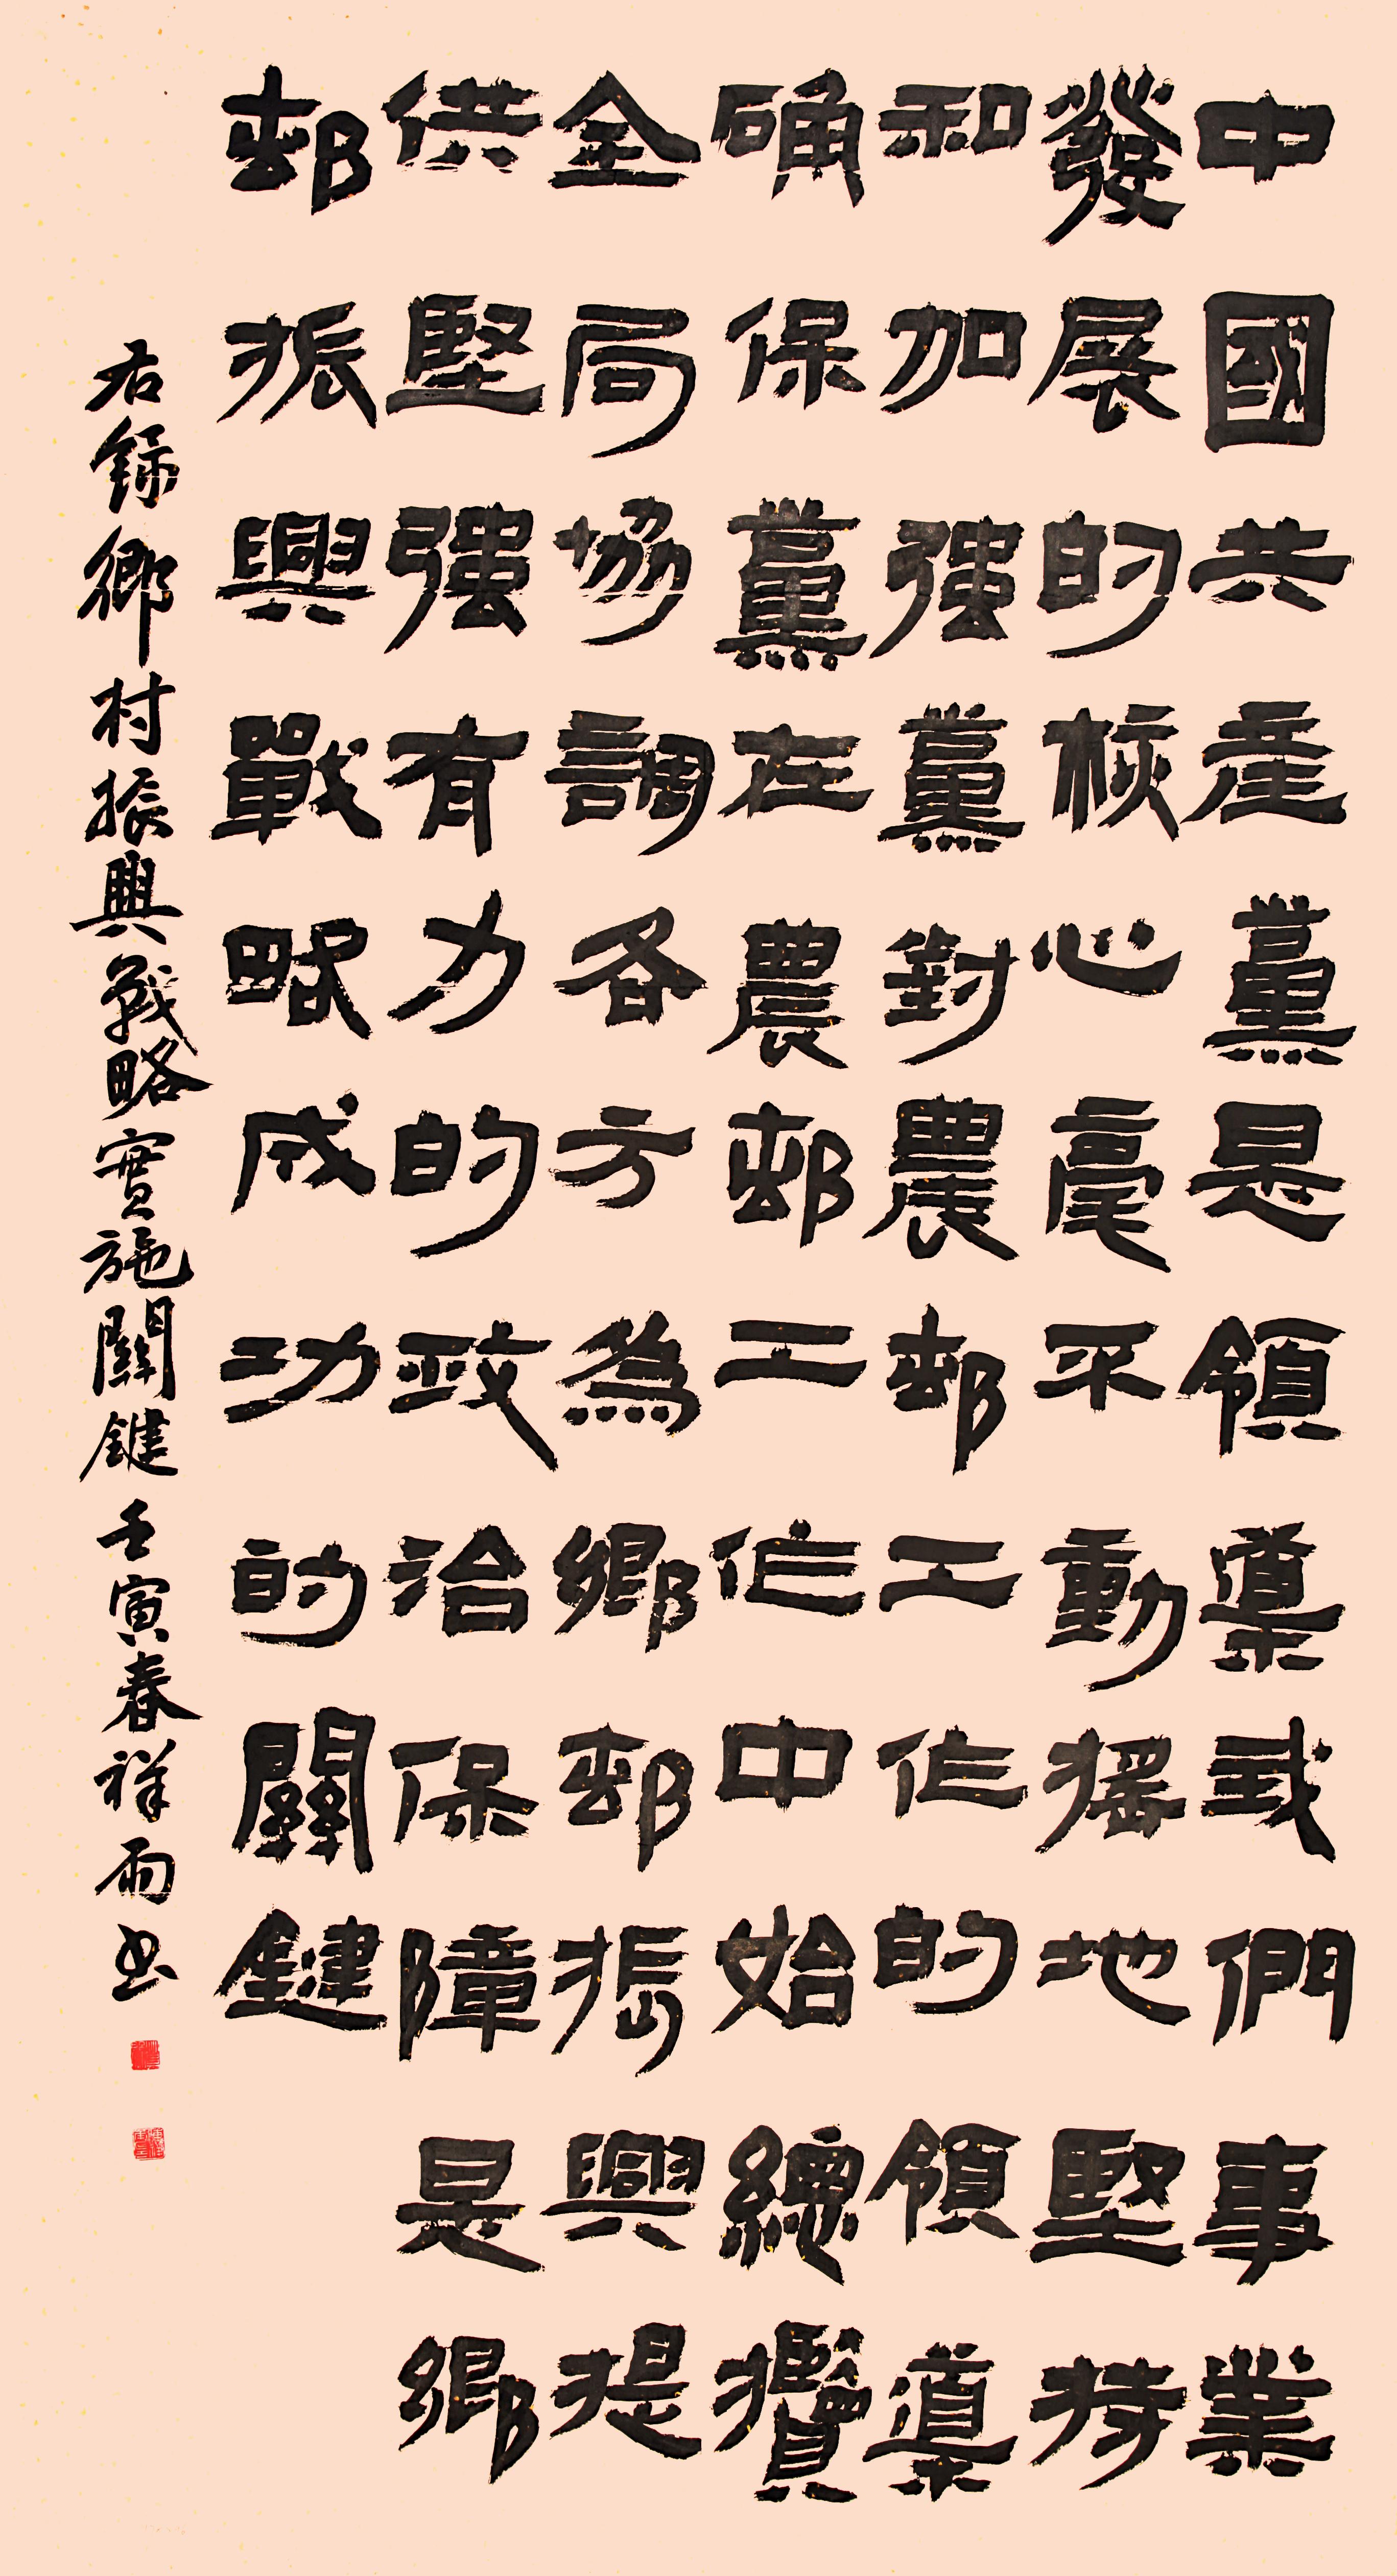 中國共產黨是領導我們事業
發展的核心毫不動搖地堅持
和加强黨對農邨工作的領導
確保黨在農邨工作中始總攬
全局協調各方為鄉邨振興提
供堅强有力的政治保障是鄉
邨振興戰略成功的關鍵
右錄鄉村振興戰略實施關鍵壬寅春祥雨书